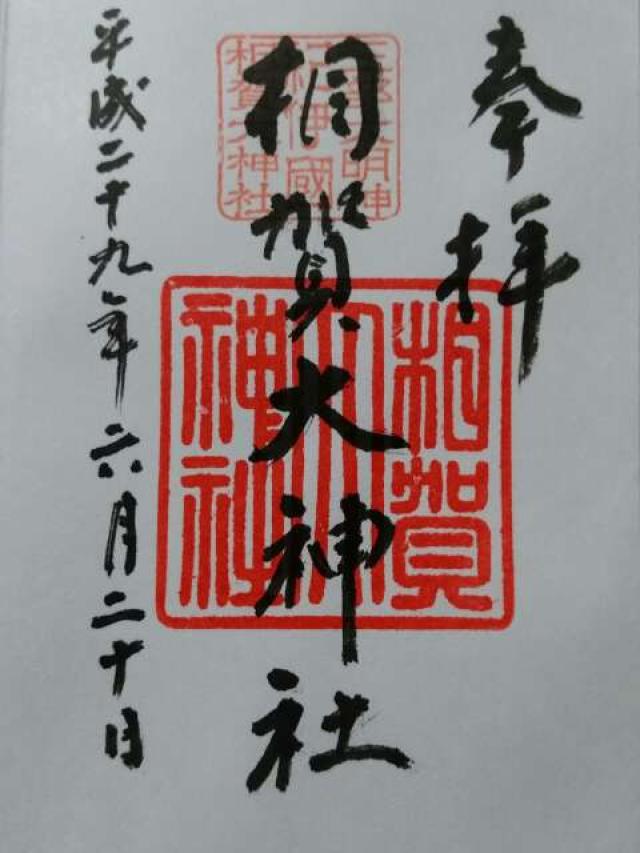 奉拝
相賀大神社
平成二十九年六月二十日
大明神
紀伊國
相賀大神社
相賀
大
神社